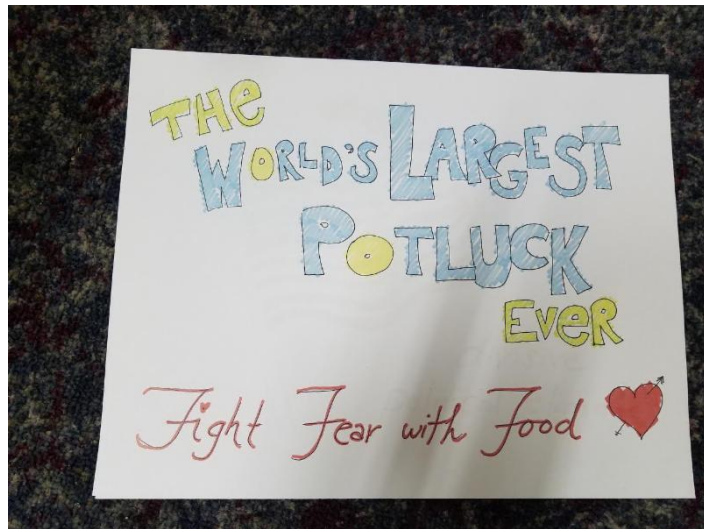 THE
WORLD'S LARGEST
POTLUCK
EVER
Fight Fear with Food